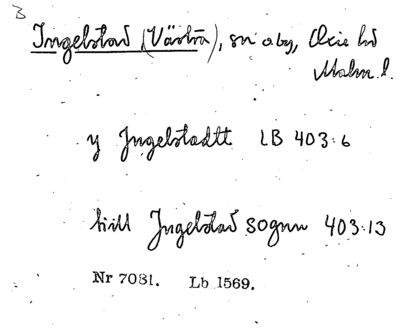 3
Ingelstad (Västra), sn o by, Oxie hd
Malm. l.
y Jngelstadtt LB 403:6
till Jngelstad sognn 403:13
Nr 7031. Lb 1569.